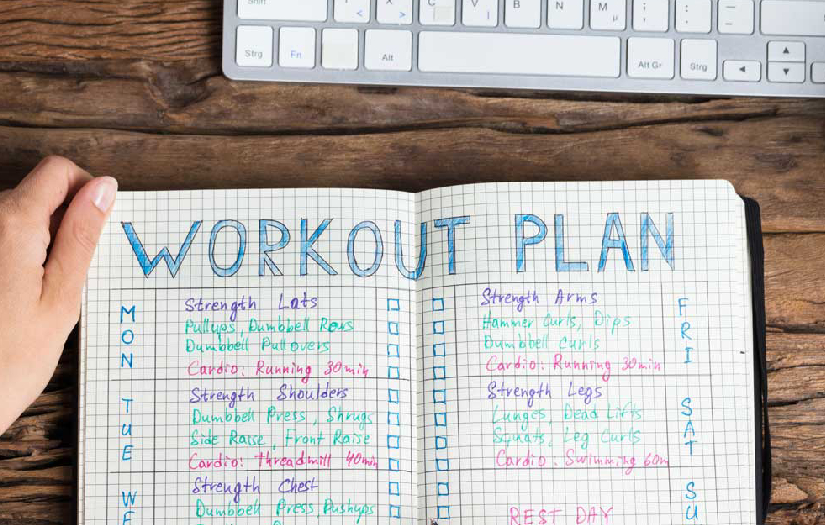 Shift
Y X C V B N M µ ; , : . _ -
Strg Fn Alt Alt Gr Strg
WORKOUT PLAN
MON
Strength Lats
Pullups, Dumbbell Rows
Dumbbell Pullovers
Cardio: Running 30min
TUE
Strength Shoulders
Dumbbell Press, Shrugs
Side Raise, Front Raise
Cardio: Threadmill 40min
WE
Strength Chest
Dumbbell Press Pushups
FRI
Strength Arms
Hammer Curls, Dips
Dumbbell Curls
Cardio: Running 30min
SAT
Strength Legs
Lunges, Dead Lifts
Squats, Leg Curls
Cardio: Swimming 60m
SU
REST DAY